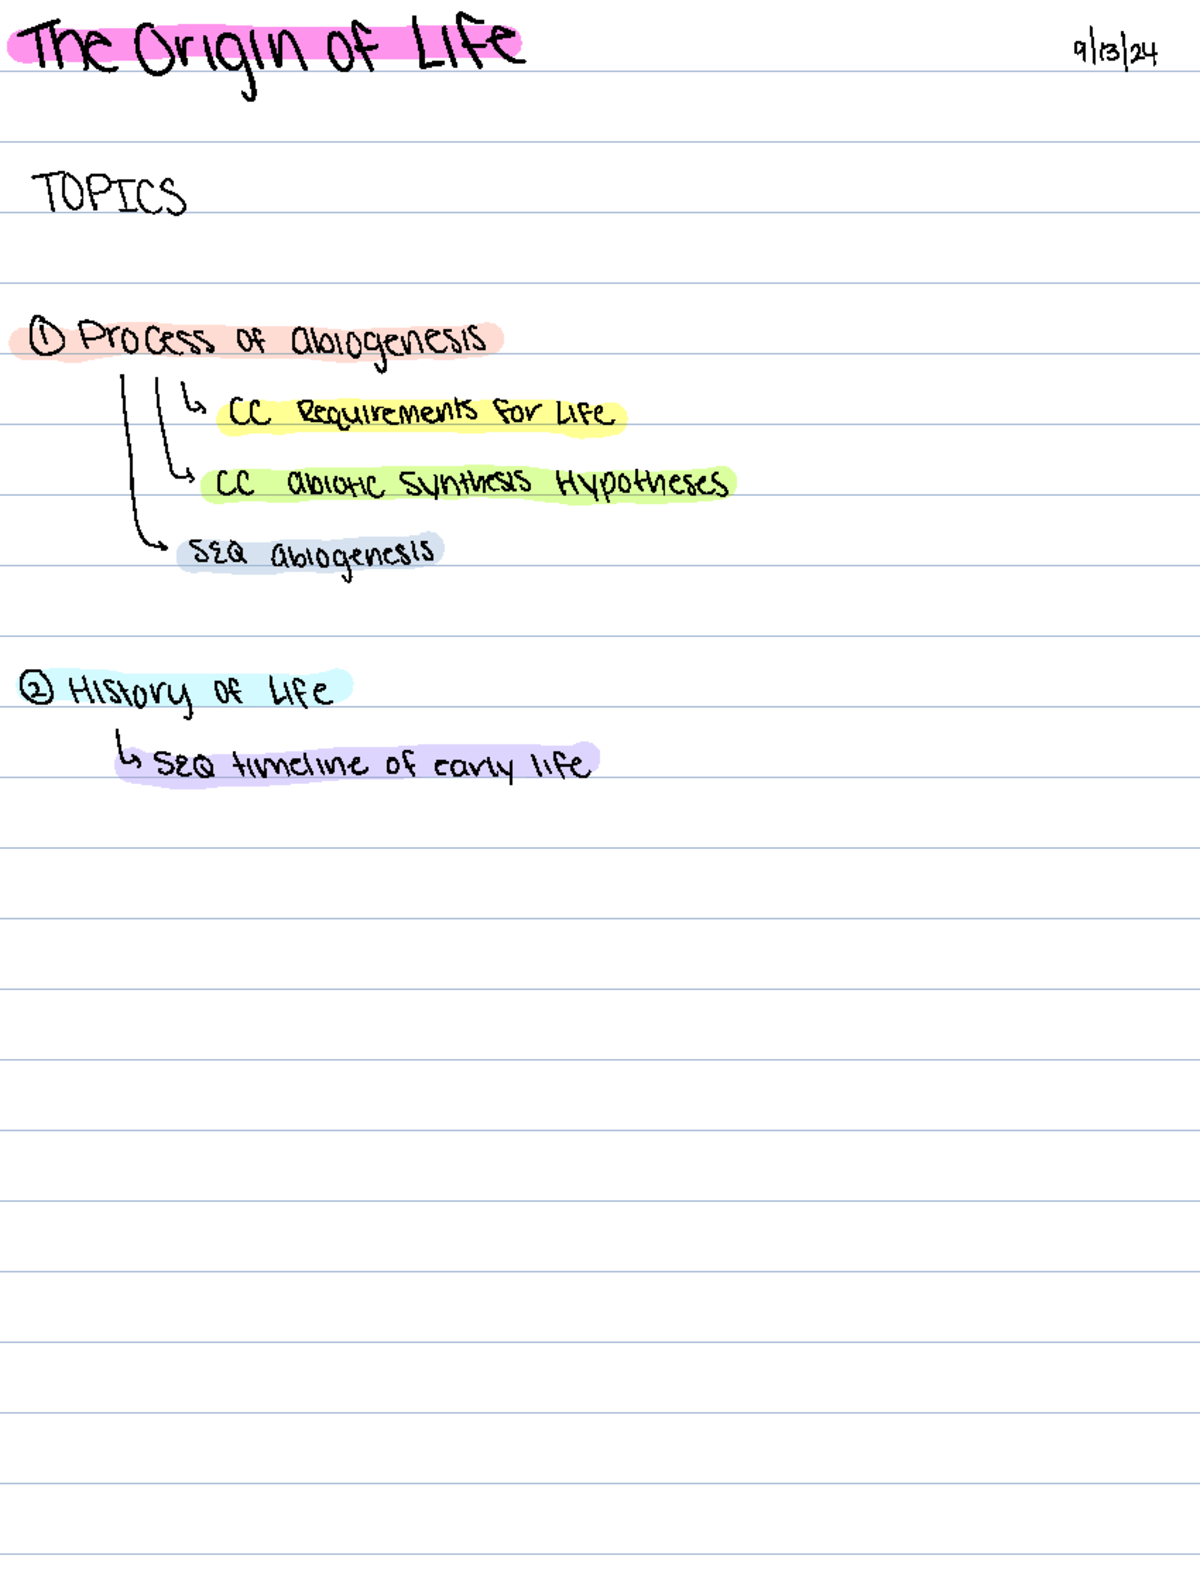 The Origin of Life
9/13/24
TOPICS
① Process of abiogenesis
↳ CC Requirements for Life
↳ CC abiotic synthesis Hypotheses
↳ SEQ abiogenesis
② History of Life
↳ SEQ timeline of early life